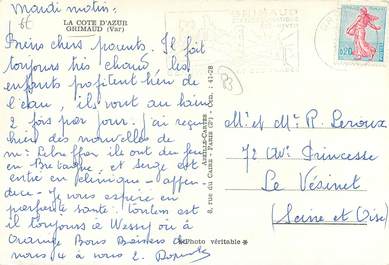 Mardi matin.
6t
LA COTE D'AZUR
GRIMAUD (Var)
Biens chers parents. Il fait
toujours très chaud les
enfants profitent bien de
l'eau, ils vont au bain
2 fois par jour. J'ai reçu
hier des nouvelles de
ils ont du feu
en Bretagne, et serge est
entré en clinique - appen
dice - Je vous espère en
parfaite santé. Tonton est
il toujours à Wessy ou à
Orange Bons Baisers de
nous 4 à vous 2.
AGFILE-CARTES
8, rue du Caire - Paris (2e) - Cen. : 41-28
Photo véritable *
GRIMAUD
83
0,20
M. et Mme P. Leroux
72 Av. Princesse
Le Vésinet
(Seine et Oise)